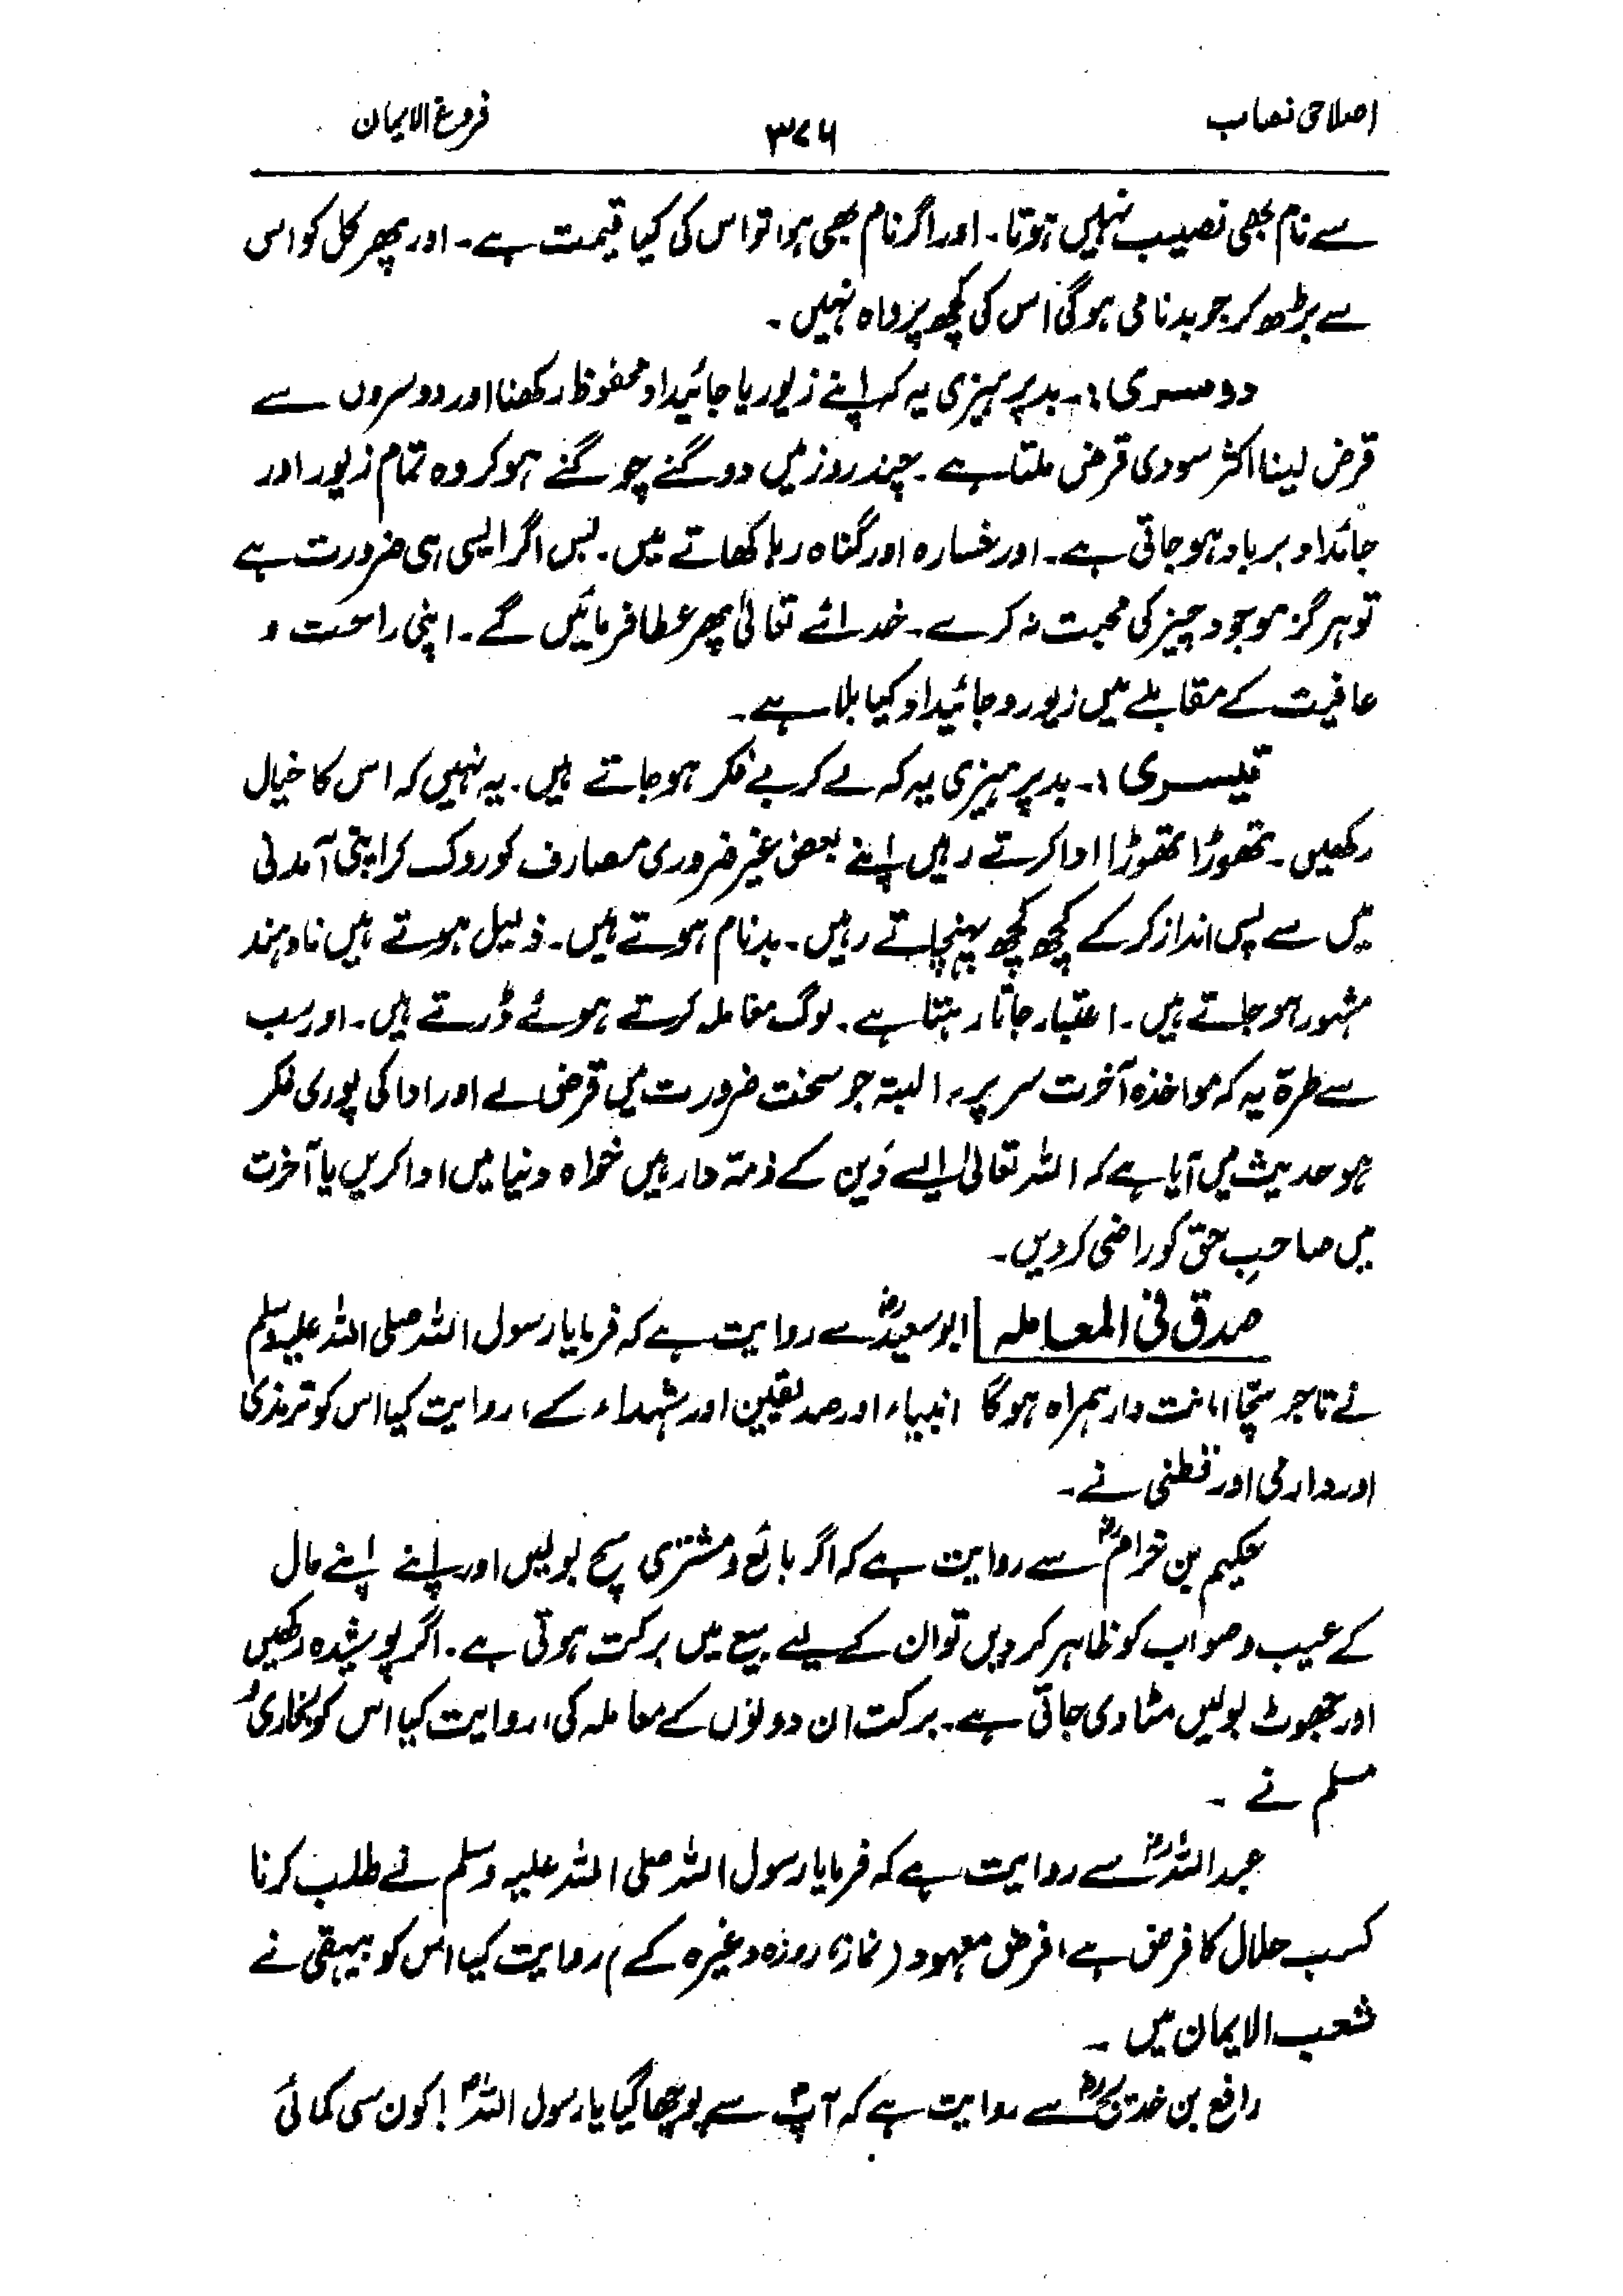 اصلاحی نصاب
۳۷۶
فروغ الایمان
سے نام بھی نصیب نہیں ہوتا۔ اور اگر نام بھی ہوا تو اس کی کیا قیمت ہے۔ اور پھر کل کو اس
سے بڑھ کر جو بدنامی ہوگی اس کی کچھ پرواہ نہیں۔
دوسری :۔ بدپرہیزی یہ کہ اپنے زیور یا جائیداد محفوظ رکھنا اور دوسروں سے
قرض لینا اکثر سودی قرض ملتا ہے۔ چند روز میں دو گنے چو گنے ہو کر وہ تمام زیور اور
جائداد برباد ہو جاتی ہے۔ اور خسارہ اور گناہ رہا کھاتے میں۔ بس اگر ایسی ہی ضرورت ہے
تو ہرگز موجود چیز کی محبت نہ کرے۔ خدائے تعالیٰ پھر عطا فرمائیں گے۔ اپنی راحت و
عافیت کے مقابلے میں زیور و جائیداد کیا بلا ہے۔
تیسری :۔ بدپرہیزی یہ کہ لے کر بے فکر ہو جاتے ہیں۔ یہ نہیں کہ اس کا خیال
رکھیں۔ تھوڑا تھوڑا ادا کرتے رہیں اپنے بعض غیر ضروری مصارف کو روک کر اپنی آمدنی
میں سے پس انداز کر کے کچھ کچھ پہنچاتے رہیں۔ بدنام ہوتے ہیں۔ ذلیل ہوتے ہیں نادہند
مشہور ہو جاتے ہیں۔ اعتبار جاتا رہتا ہے۔ لوگ معاملہ کرتے ہوئے ڈرتے ہیں۔ اور سب
سے طرہ یہ کہ مواخذہ آخرت سر پر۔ البتہ جو سخت ضرورت میں قرض لے اور ادا کی پوری فکر
ہو حدیث میں آیا ہے کہ اللہ تعالیٰ ایسے دَین کے ذمہ دار ہیں خواہ دنیا میں ادا کریں یا آخرت
میں صاحبِ حق کو راضی کر دیں۔
صدق فی المعاملہ ابوسعیدؓ سے روایت ہے کہ فرمایا رسول اللہ صلی اللہ علیہ وسلم
نے تاجر سچا امانت دار ہمراہ ہوگا انبیاء اور صدیقین اور شہداء کے، روایت کیا اس کو ترمذی
اور دارمی اور قطنی نے۔
حکیم بن خرامؓ سے روایت ہے کہ اگر بائع و مشتری سچ بولیں اور اپنے اپنے مال
کے عیب و صواب کو ظاہر کر دیں تو ان کے لیے بیع میں برکت ہوتی ہے۔ اگر پوشیدہ رکھیں
اور جھوٹ بولیں مٹا دی جاتی ہے۔ برکت ان دونوں کے معاملہ کی، روایت کیا اس کو بخاری و
مسلم نے ۔
عبداللہؓ سے روایت ہے کہ فرمایا رسول اللہ صلی اللہ علیہ وسلم نے طلب کرنا
کسب حلال کا فرض ہے افرض معہود (نماز، روزہ وغیرہ کے م روایت کیا اس کو بیہقی نے
شعب الایمان میں ۔
رافع بن خدیجؓ سے روایت ہے کہ آپؐ سے پوچھا گیا یا رسول اللہؐ ! کون سی کمائی